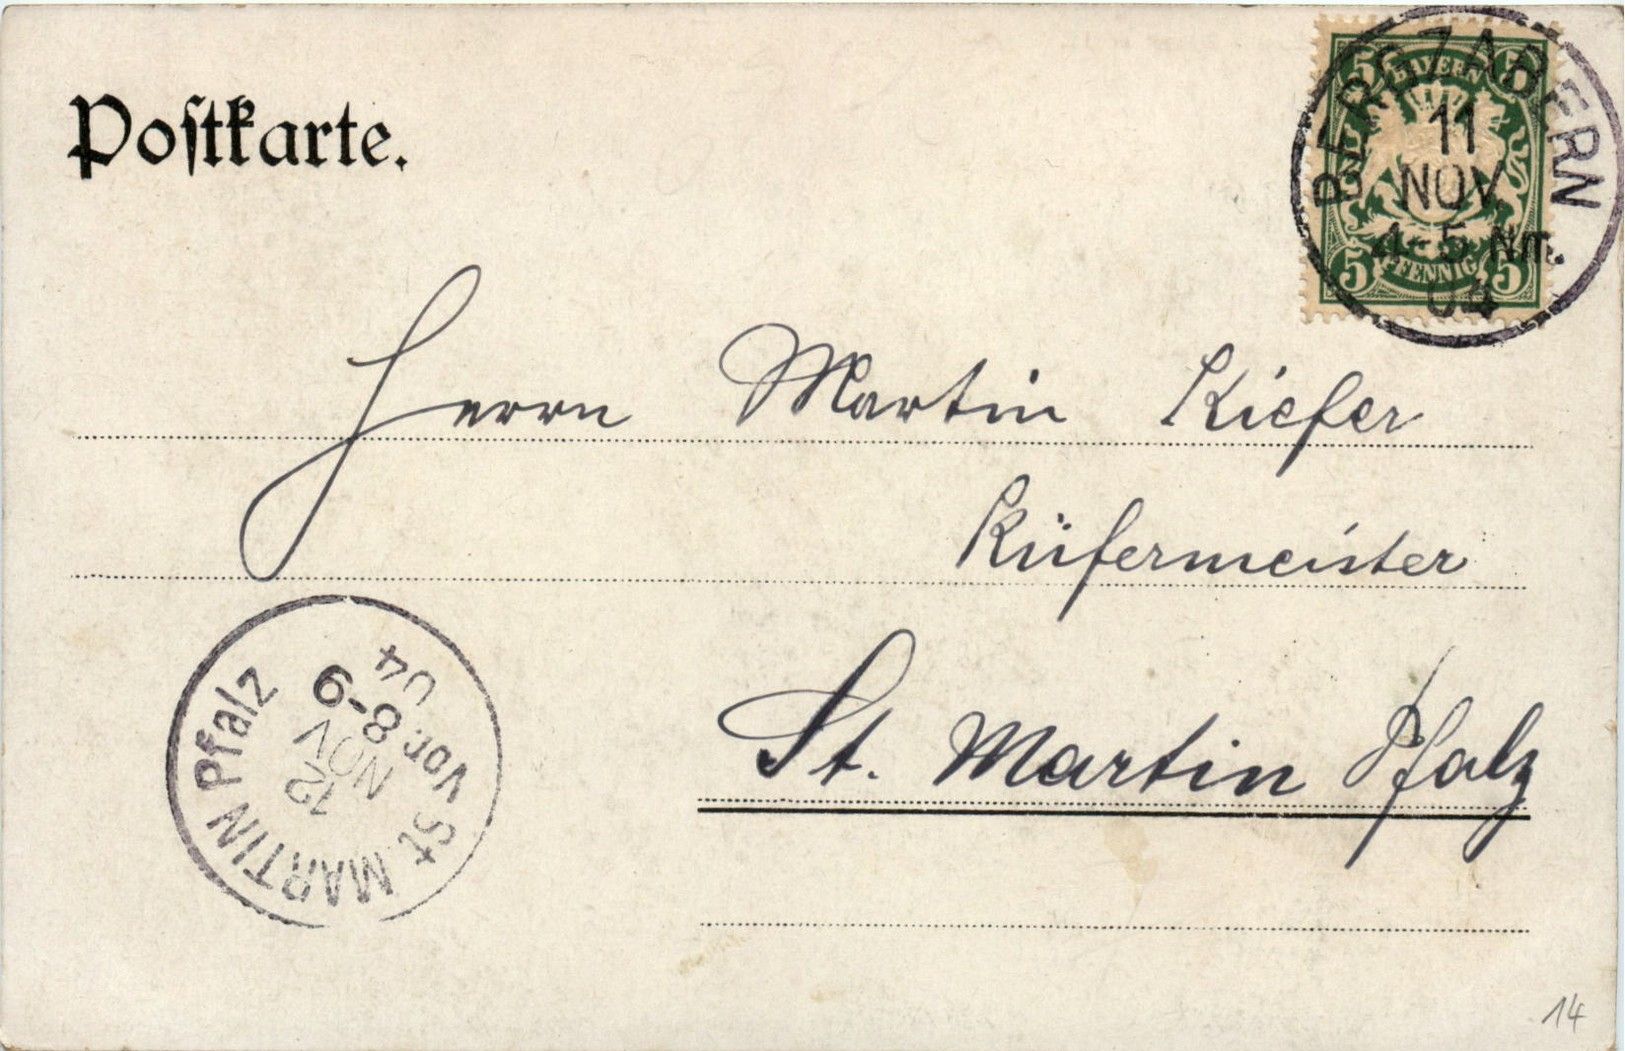 Postkarte.
BAYERN
5 5
5 PFENNIG 5
BERGZABERN
11
NOV.
4-5 Nm.
04
Herrn Martin Kiefer
Küfermeister
St. Martin Pfalz
St. MARTIN Pfalz
12
NOV
Vor. 8-9
04
14